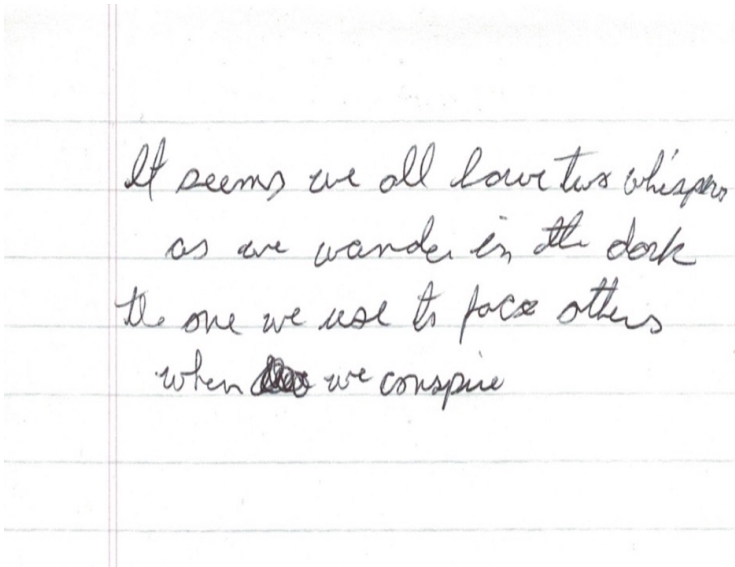 It seems we all have two whispers
as we wander in the dark
the one we use to face others
when we conspire